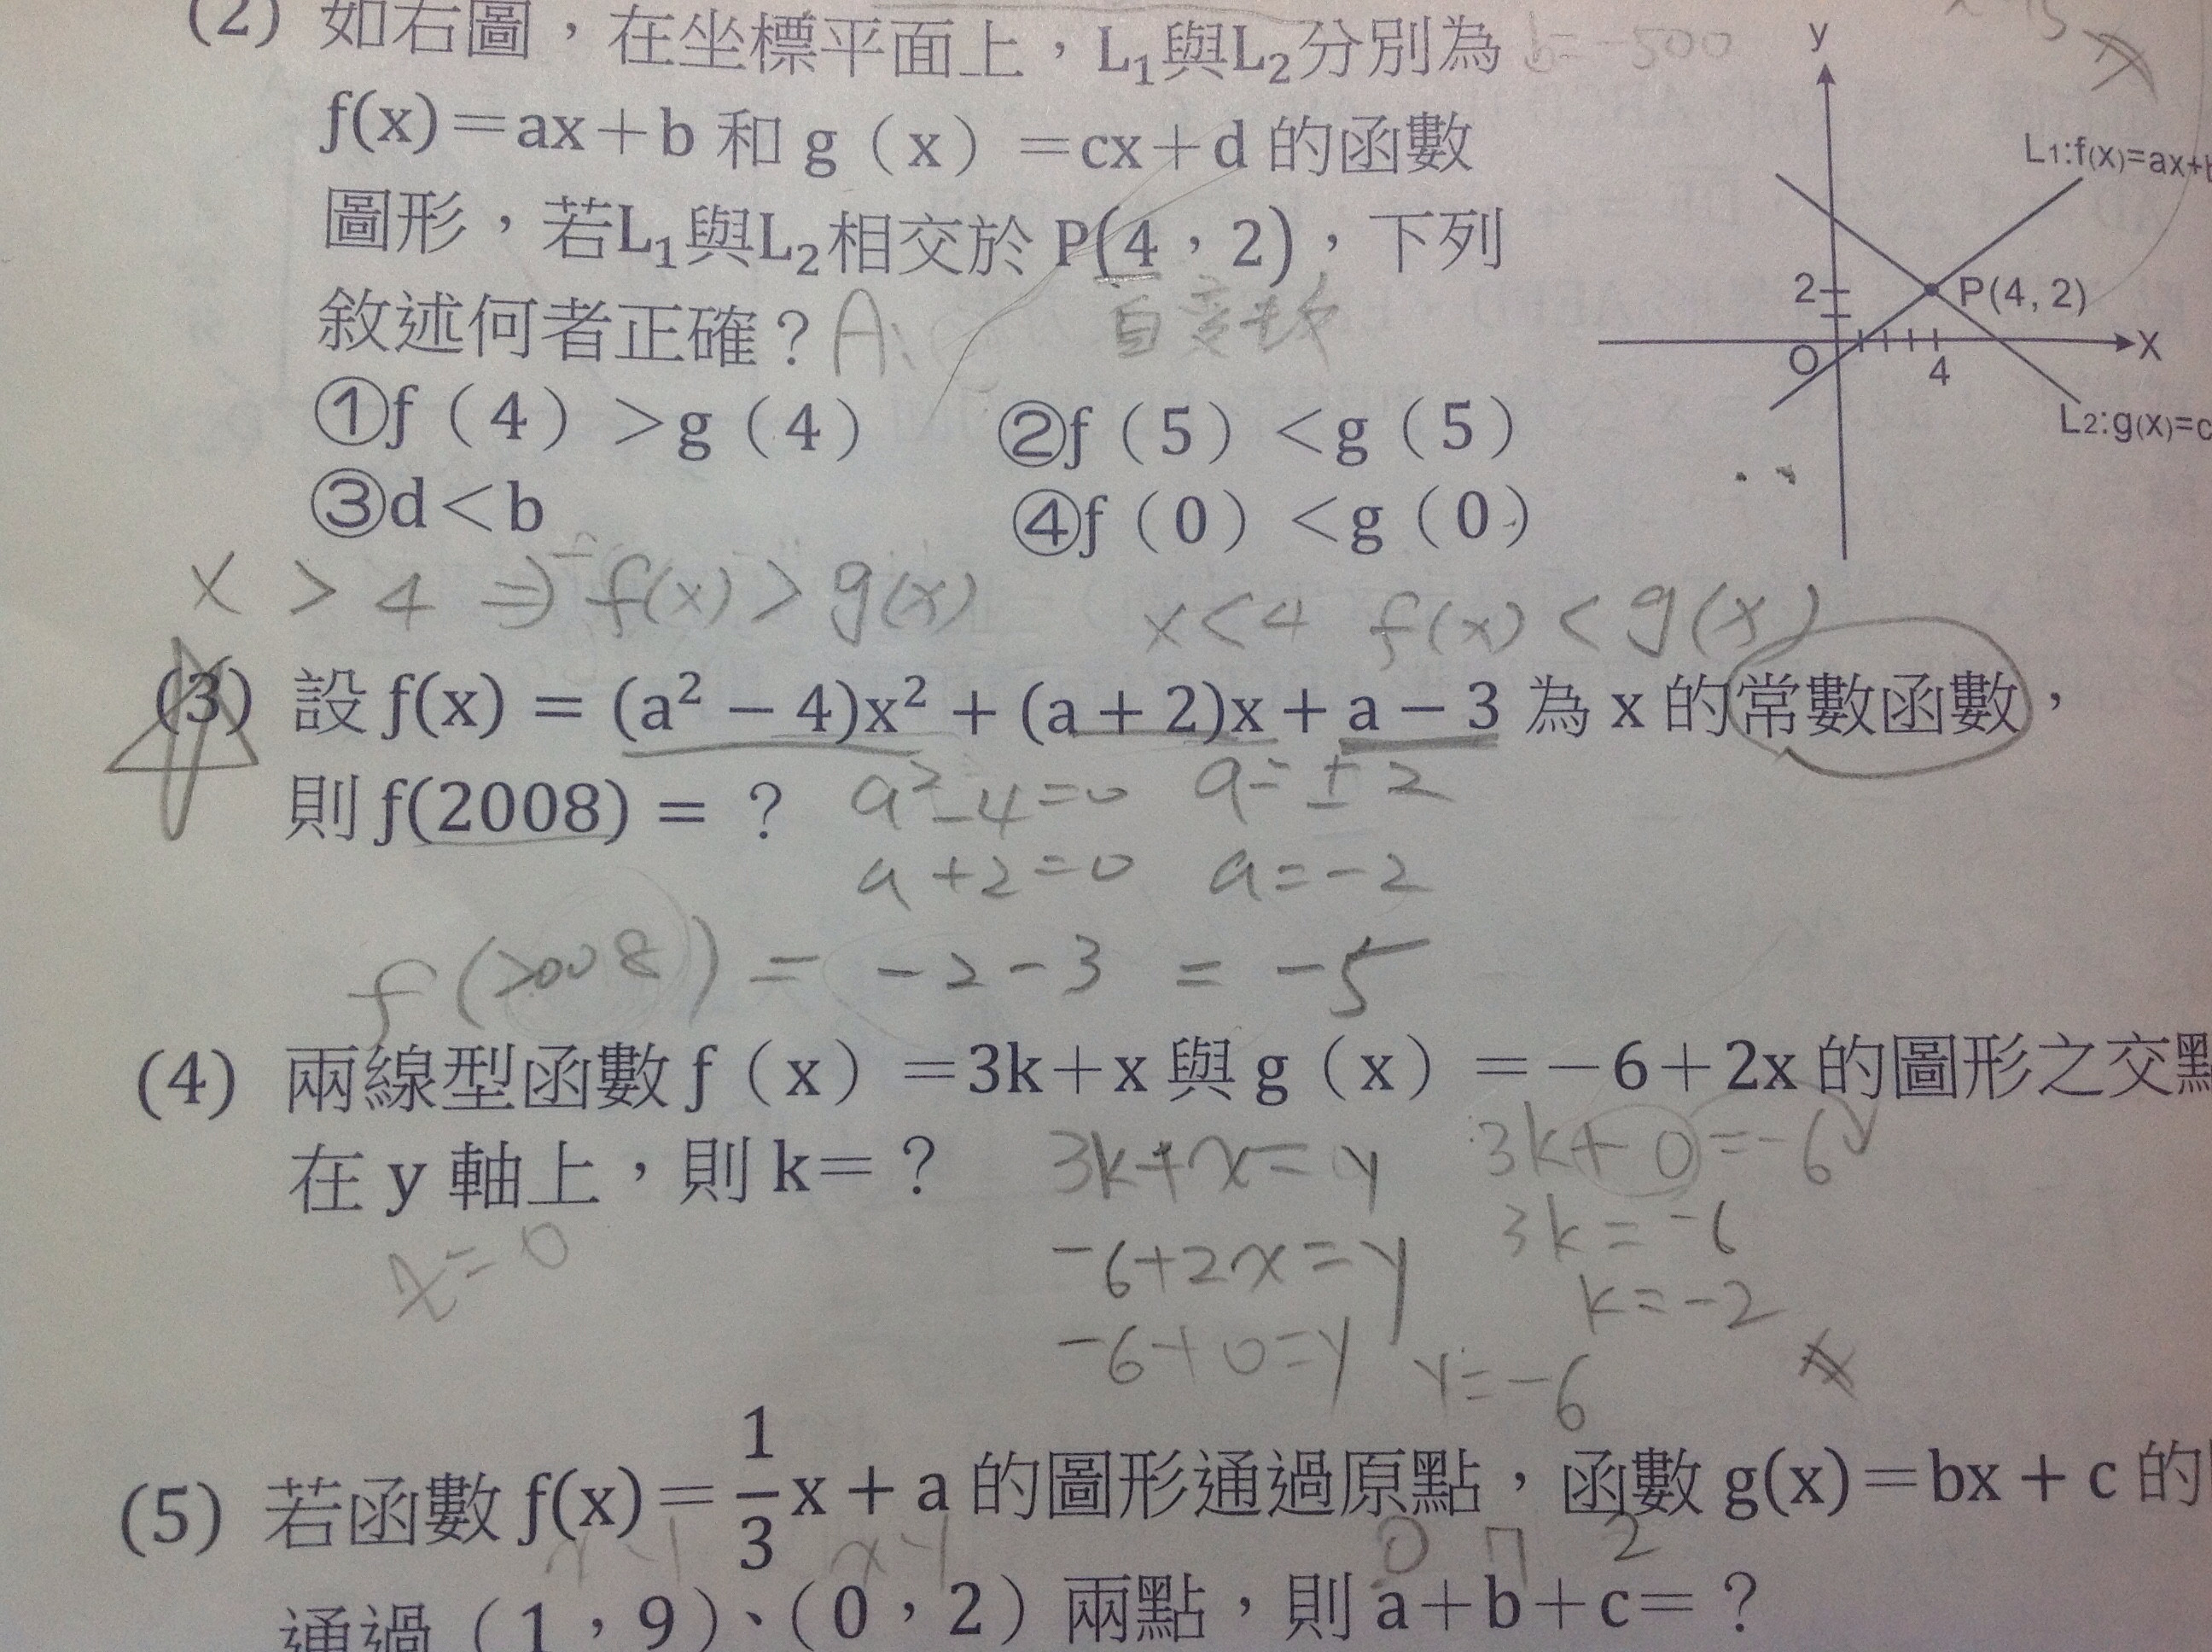 (2) 如右圖，在坐標平面上，L₁與L₂分別為
b=-500
f(x)=ax+b 和 g（x）=cx+d 的函數
圖形，若L₁與L₂相交於 P(4，2)，下列
敘述何者正確？
A:
自變數
①f（4）>g（4） ②f（5）<g（5）
③d<b ④f（0）<g（0）
y
L1:f(x)=ax+b
2
P(4, 2)
O
4
X
L2:g(x)=c
x > 4 ⇒ f(x) > g(x)
x<4 f(x) < g(x)
(3) 設 f(x) = (a² − 4)x² + (a + 2)x + a − 3 為 x 的常數函數，
則 f(2008) = ？
a²-4=0 a=±2
a+2=0 a=-2
f(2008) = -2-3 = -5
(4) 兩線型函數 f（x）=3k+x 與 g（x）=−6+2x 的圖形之交點
在 y 軸上，則 k=？
x=0
3k+x=y
-6+2x=y
-6+0=y y=-6
3k+0=-6
3k=-6
k=-2
(5) 若函數 f(x)=1/3x + a 的圖形通過原點，函數 g(x)=bx + c 的
x y x y 0 7 2
通過（1，9）、（0，2）兩點，則 a+b+c=？